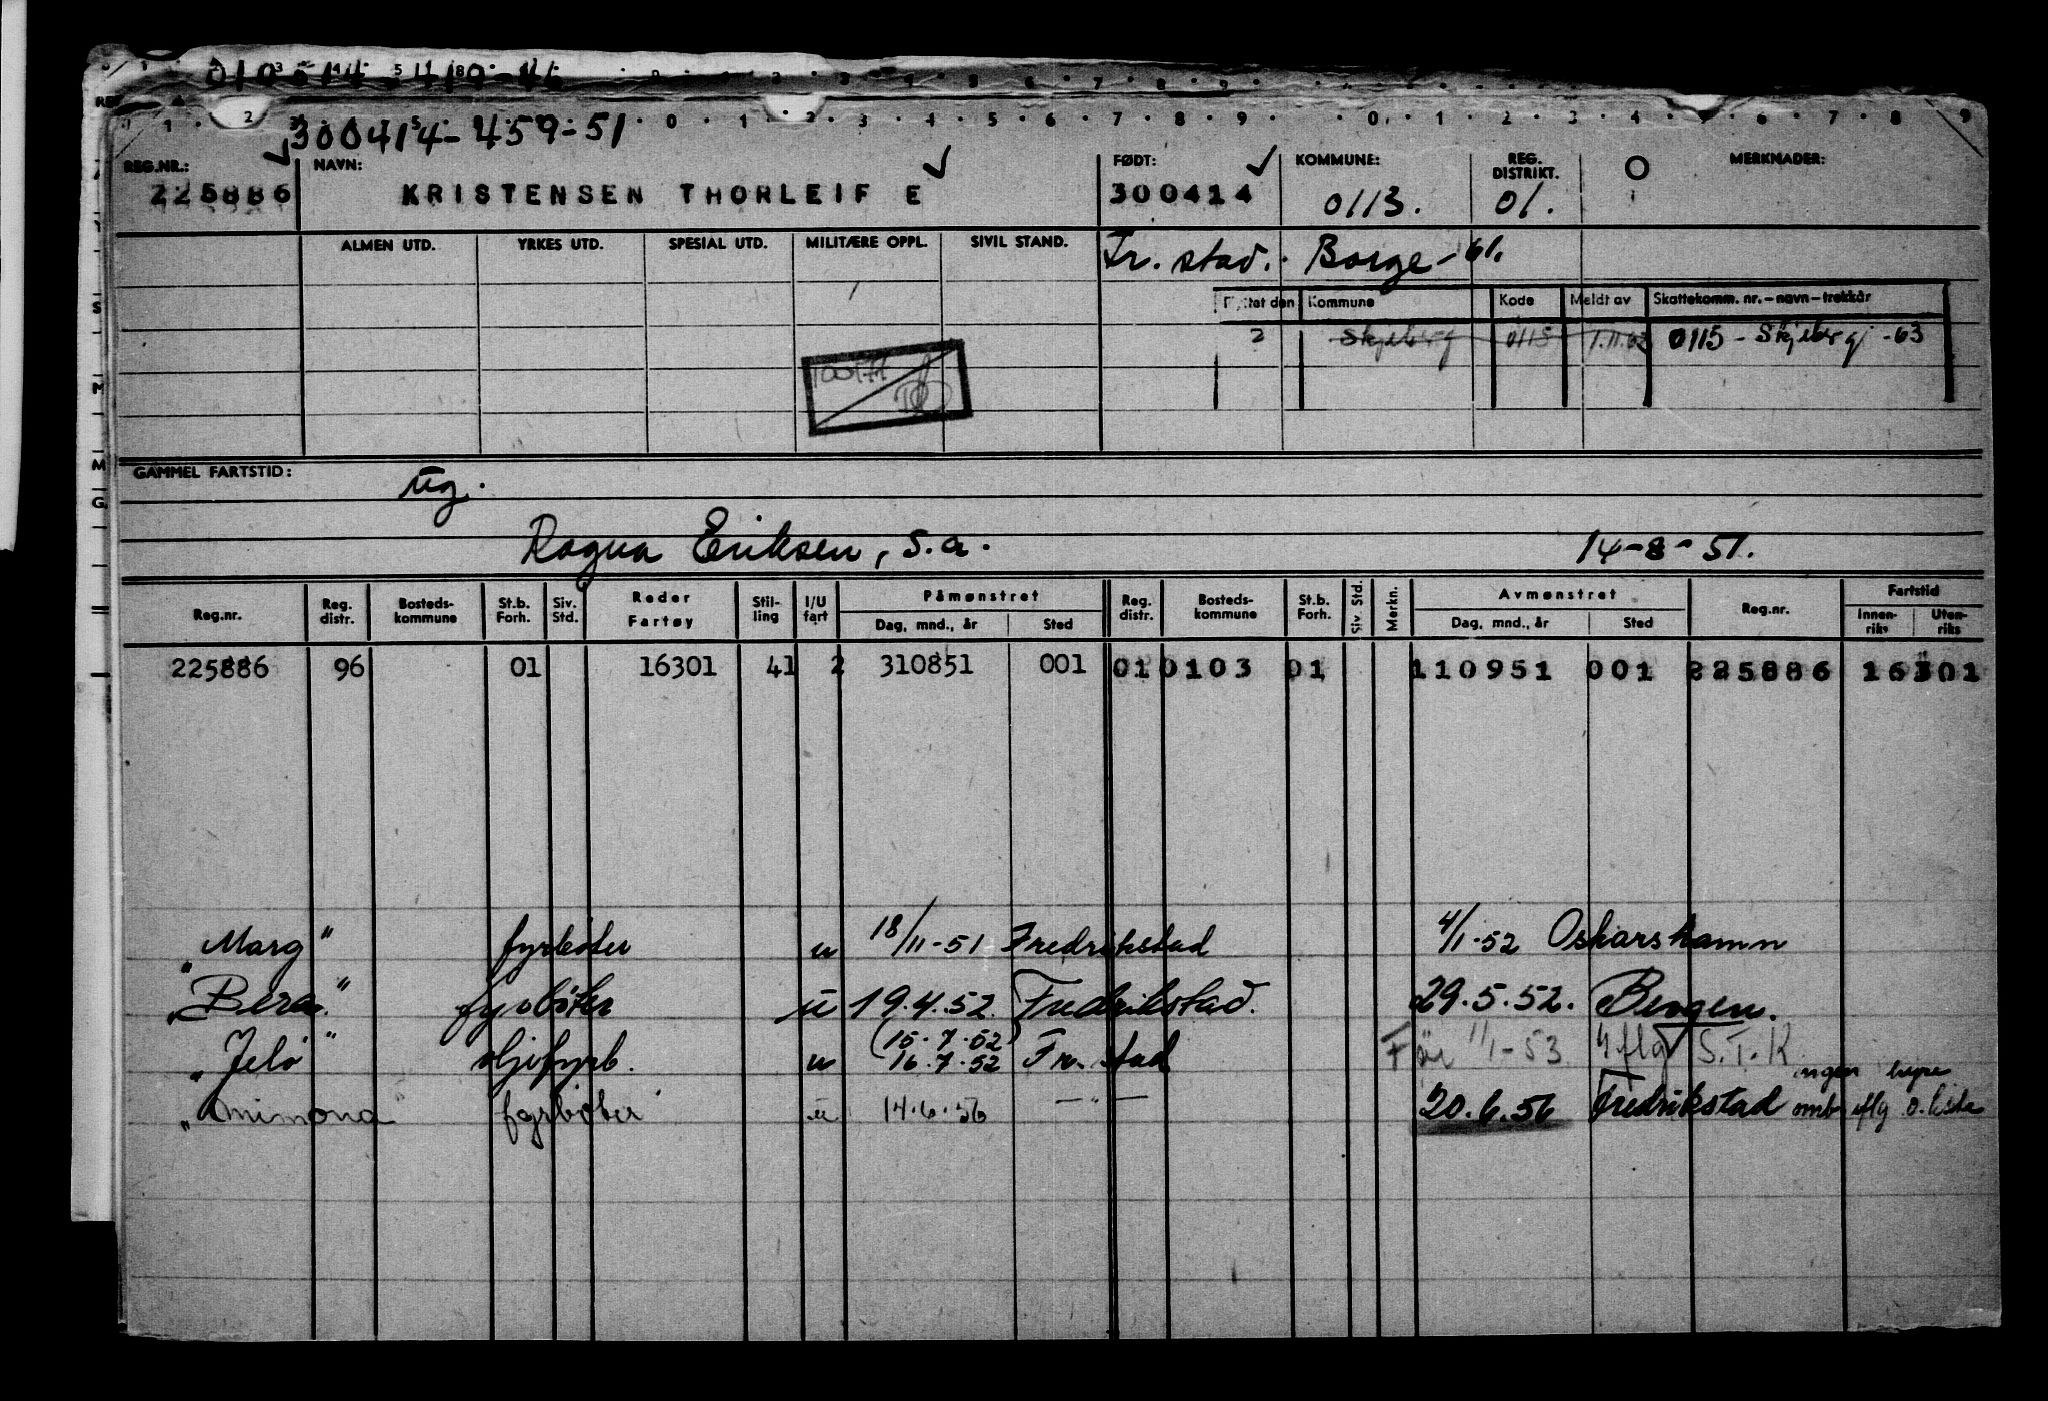 300414-459-51
REG.NR.: NAVN: FØDT: KOMMUNE: REG. DISTRIKT. MERKNADER:
225886 KRISTENSEN THORLEIF E 300414 0113. 01.
ALMEN UTD. YRKES UTD. SPESIAL UTD. MILITÆRE OPPL. SIVIL STAND. Fr. stad. Borge -61.
Kommune Kode Meldt av Skattekomm. nr.-navn-trekkår
2 Skjeberg 0115 1.11.62 0115 - Skjeberg -63
GAMMEL FARTSTID: ug.
Ragna Eriksen, s.a. 14-8-51.
Reg.nr. Reg. distr. Bosteds-kommune St.b. Forh. Siv. Std. Reder Fartøy Stil-ling I/U fart Påmønstret Dag, mnd., år Sted Reg. distr. Bosteds-kommune St.b. Forh. Siv. Std. Merkn. Avmønstret Dag, mnd., år Sted Reg.nr. Fartstid Innen-riks Uten-riks
225886 96 01 16301 41 2 310851 001 01 0103 01 110951 001 225886 16301
"Marg" fyrbøter u 18/11-51 Fredrikstad 4/1-52 Oskarshamn
"Bera" fyrbøter u 19.4.52. Fredrikstad. 29.5.52. Bergen.
(15.7.52)
"Jelø" oljefyrb. u 16.7.52 Fr. stad 11/1-53 S.T.K
"Mimona" fyrbøter u 14.6.56 —"— 20.6.56 Fredrikstad